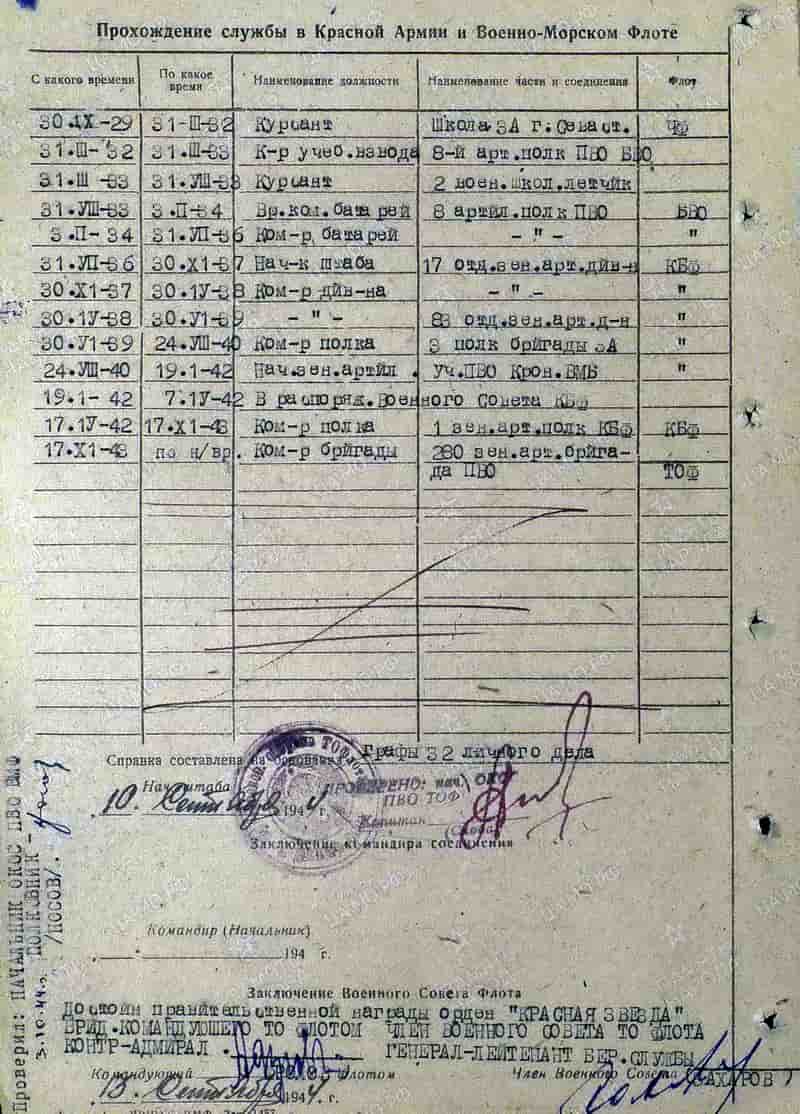 Прохождение службы в Красной Армии и Военно-Морском Флоте
С какого времени По какое время Наименование должности Наименование части и соединения Флот
30.IX-29 31-Ш-32 Курсант Школа ЗА г.Севаст. ЧФ
31.Ш-32 31.Ш-33 К-р учеб.взвода 8-й арт.полк ПВО БВО
31.Ш-33 31.УШ-33 Курсант 2 воен.школ.летчик
31.УШ-33 3.П-34 Вр.ком.батарей 8 артил.полк ПВО БВО
3.П-34 31.УП-36 Ком-р батарей -"- "
31.УП-36 30.Х1-37 Нач-к штаба 17 отд.зен.арт.дйв-н КБФ
30.Х1-37 30.1У-38 Ком-р див-на -"- "
30.1У-38 30.У1-39 -"- 83 отд.зен.арт.д-н "
30.У1-39 24.УШ-40 Ком-р полка 3 полк бригады ЗА "
24.УШ-40 19.1-42 Нач.зен.артил. Уч.ПВО Крон.ВМБ "
19.1-42 7.1У-42 В распоряж.Военного Совета КБФ
17.1У-42 17.Х1-43 Ком-р полка 1 зен.арт.полк КБФ КБФ
17.Х1-43 по н/вр. Ком-р бригады 280 зен.арт.брига-
да ПВО ТОФ
Справка составлена на основании Графы 32 личного дела
Нач. штаба
10 Сентября 1944 г.
ПРОВЕРЕНО: нач. ОКОС
ПВО ТОФ
Капитан
Заключение командира соединения
Командир (Начальник)
194 г.
Заключение Военного Совета Флота
Достоин правительственной награды орден "КРАСНАЯ ЗВЕЗДА"
ВРИД.КОМАНДУЮЩЕГО ТО ФЛОТОМ ЧЛЕН ВОЕННОГО СОВЕТА ТО ФЛОТА
КОНТР-АДМИРАЛ. ГЕНЕРАЛ-ЛЕЙТЕНАНТ БЕР.СЛУЖБЫ
Командующий Флотом Член Военного Совета ЗАХАРОВ
13 Сентября 1944 г.
Проверил: НАЧАЛЬНИК ОКОС ПВО ТОФ
ПОЛКОВНИК -
/НОСОВ/.
3.10.44г.